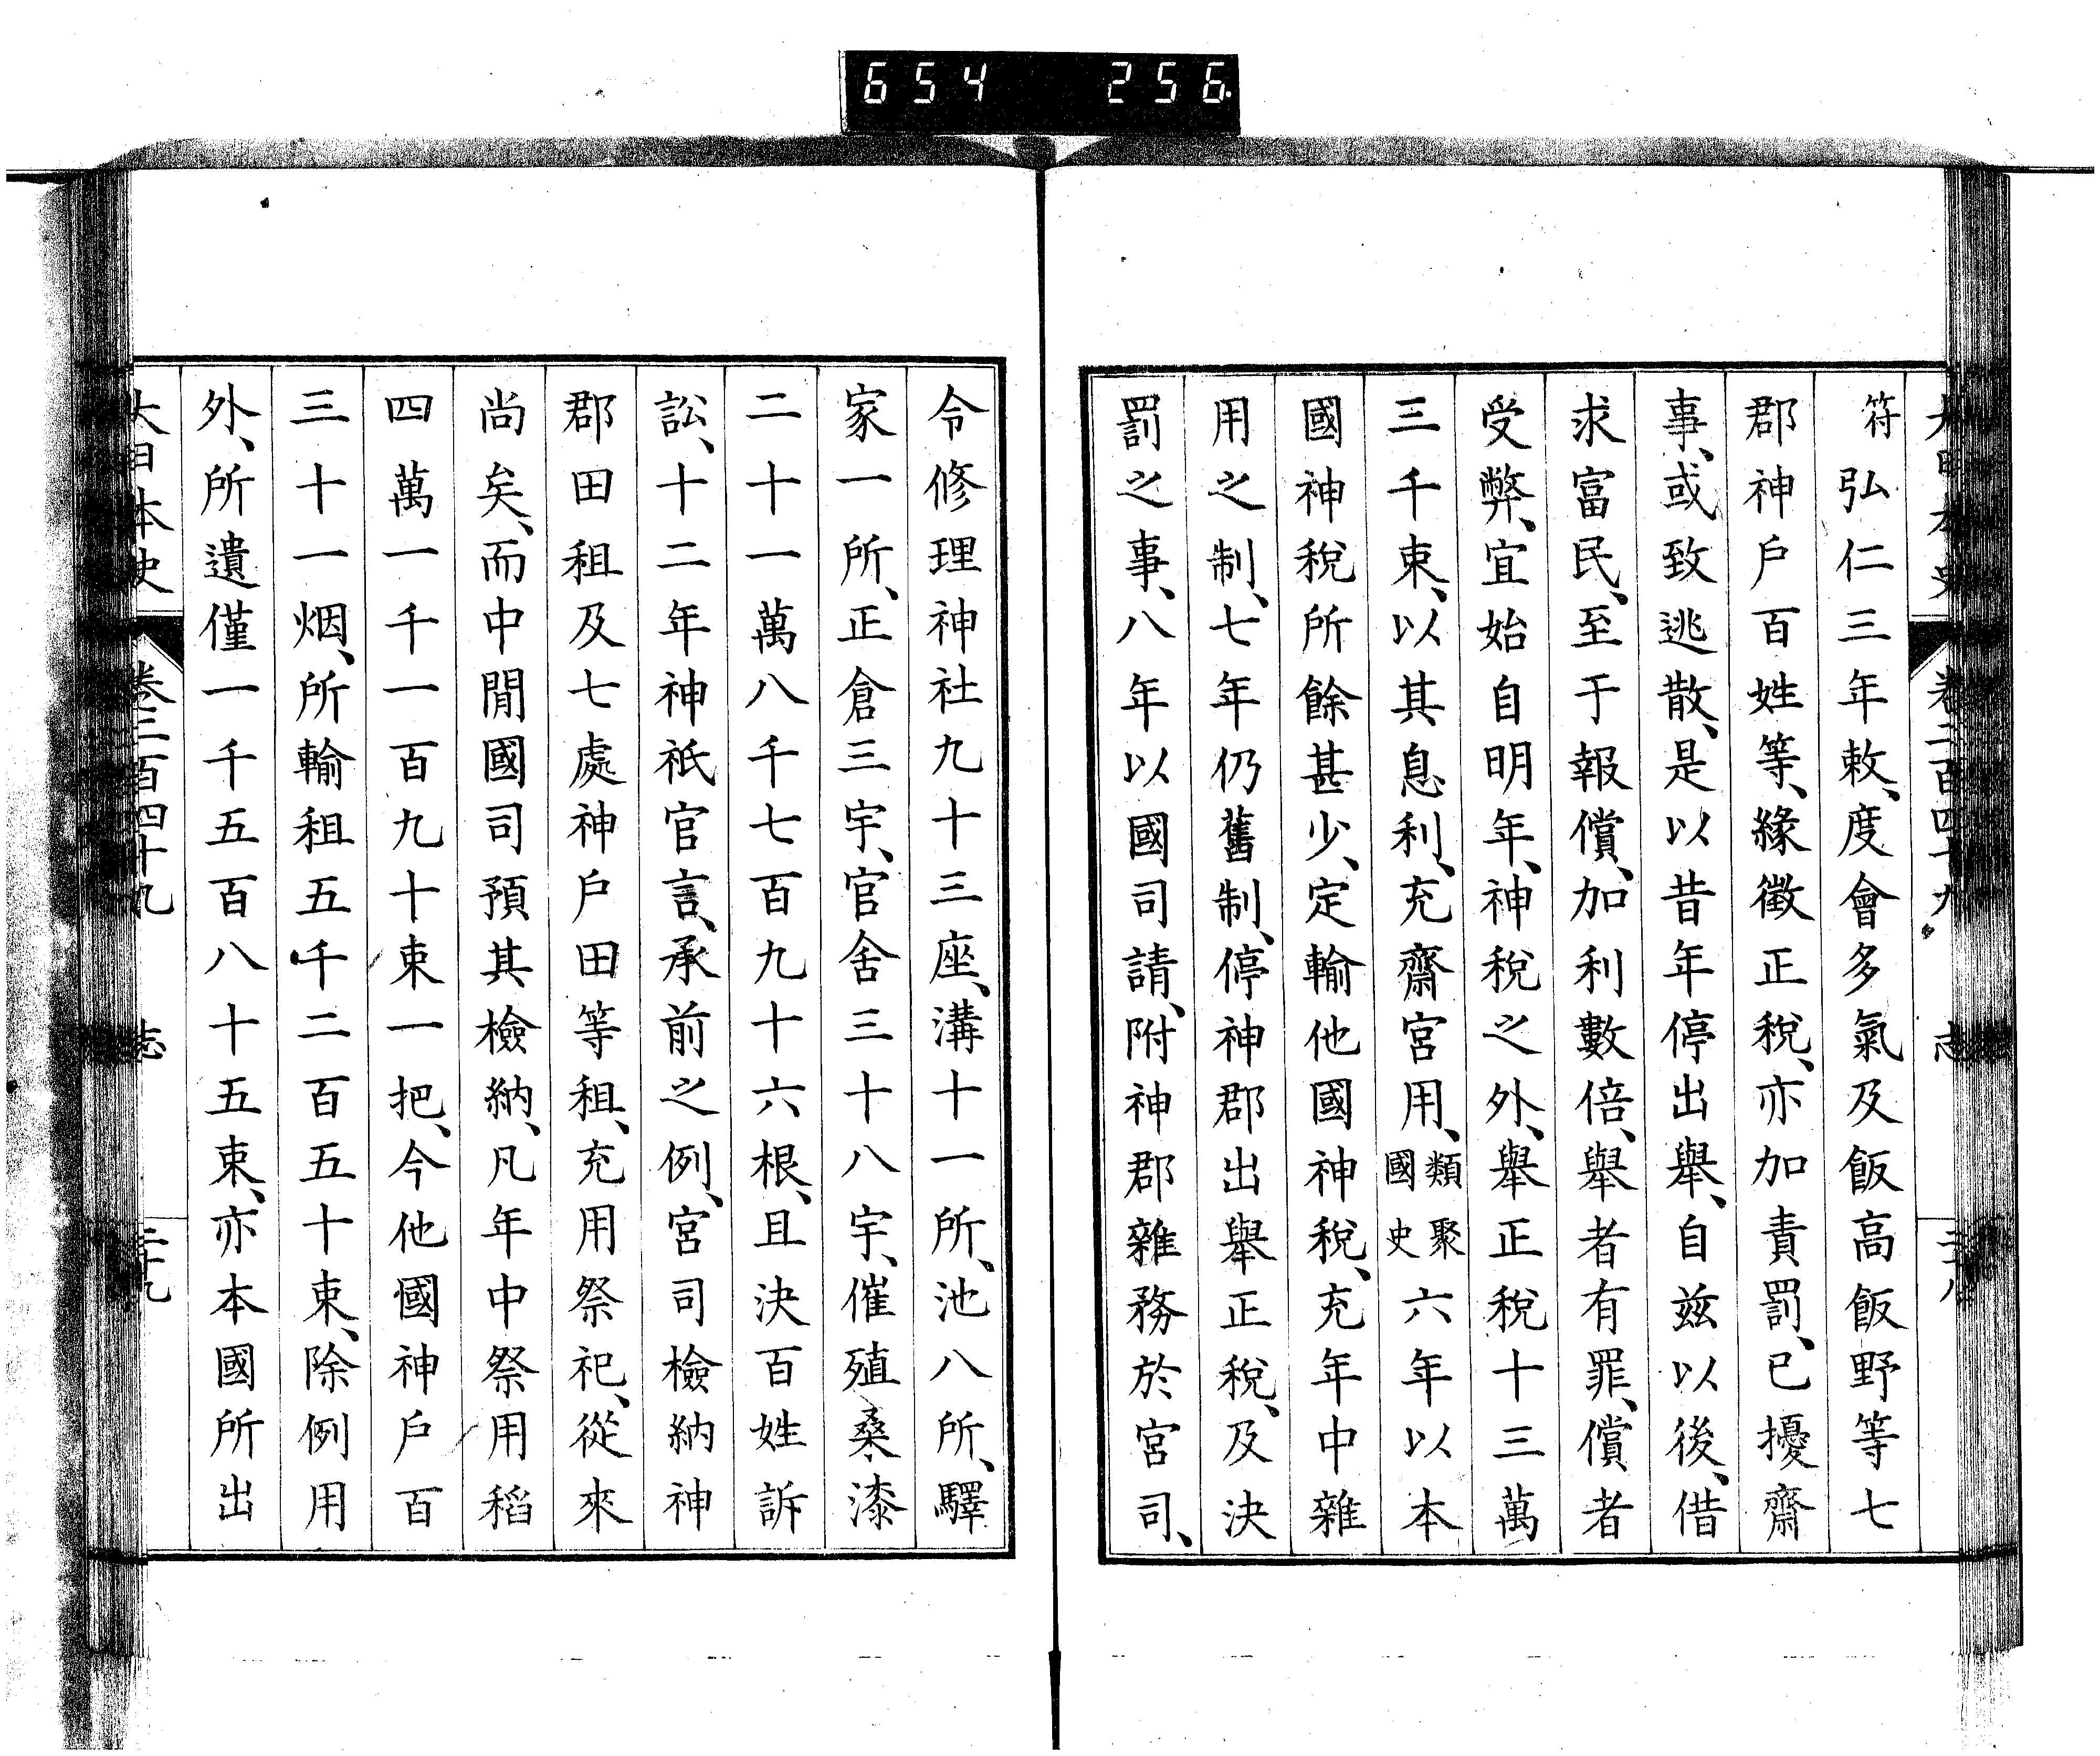 654 256
大日本史 卷二百四十九 志 二十八
符弘仁三年敕、度會多氣及飯高飯野等七
郡神戶百姓等、緣徵正稅、亦加責罰、已擾齋
事、或致逃散、是以昔年停出舉、自茲以後、借
求富民、至于報償、加利數倍、舉者有罪、償者
受弊、宜始自明年、神稅之外、舉正稅十三萬
三千束、以其息利、充齋宮用、類聚國史六年以本
國神稅所餘甚少、定輸他國神稅、充年中雜
用之制、七年仍舊制、停神郡出舉正稅、及決
罰之事、八年以國司請、附神郡雜務於宮司、
令修理神社九十三座、溝十一所、池八所、驛
家一所、正倉三宇、官舍三十八宇、催殖桑漆
二十一萬八千七百九十六根、且決百姓訴
訟、十二年神祇官言、承前之例、宮司檢納神
郡田租及七處神戶田等租、充用祭祀、從來
尚矣、而中閒國司預其檢納、凡年中祭用稻
四萬一千一百九十束一把、今他國神戶百
三十一烟、所輸租五千二百五十束、除例用
外、所遺僅一千五百八十五束、亦本國所出
大日本史 卷二百四十九 志 二十九